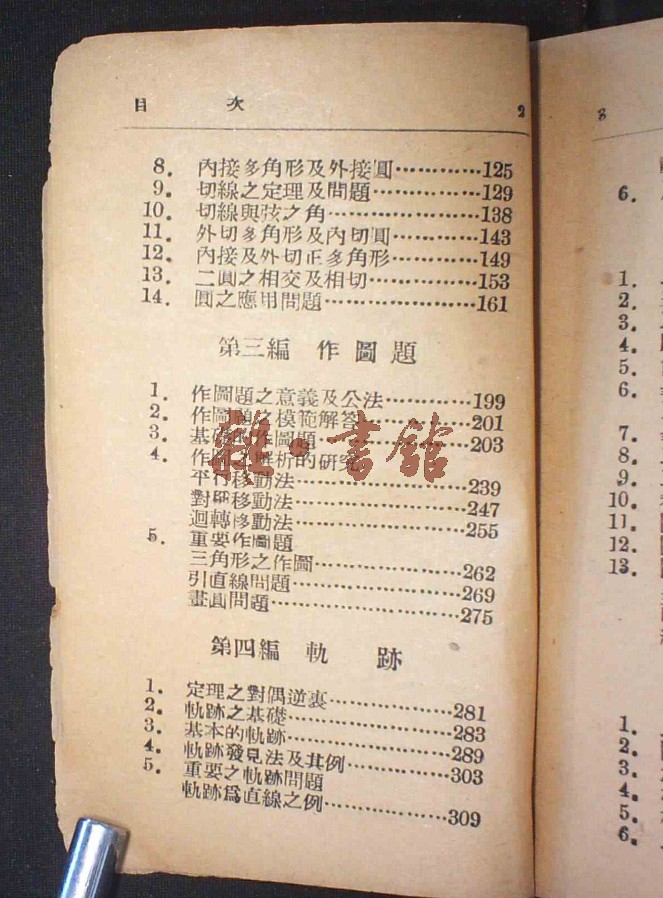 目 次 2
8. 內接多角形及外接圓…………125
9. 切線之定理及問題……………129
10. 切線與弦之角…………………138
11. 外切多角形及內切圓…………143
12. 內接及外切正多角形…………149
13. 二圓之相交及相切……………153
14. 圓之應用問題…………………161
第三編 作圖題
1. 作圖題之意義及公法…………199
2. 作圖題之模範解答……………201
3. 基礎的作圖題…………………203
4. 作圖之解析的研究
平行移動法……………………239
對稱移動法……………………247
迴轉移動法……………………255
5. 重要作圖題
三角形之作圖…………………262
引直線問題……………………269
畫圓問題………………………275
第四編 軌 跡
1. 定理之對偶逆裏………………281
2. 軌跡之基礎……………………283
3. 基本的軌跡……………………289
4. 軌跡發見法及其例……………303
5. 重要之軌跡問題
軌跡爲直線之例………………309
雜·書館
3
6.
1.
2.
3.
4.
5.
6.
7.
8.
9.
10.
11.
12.
13.
1.
2.
3.
4.
5.
6.